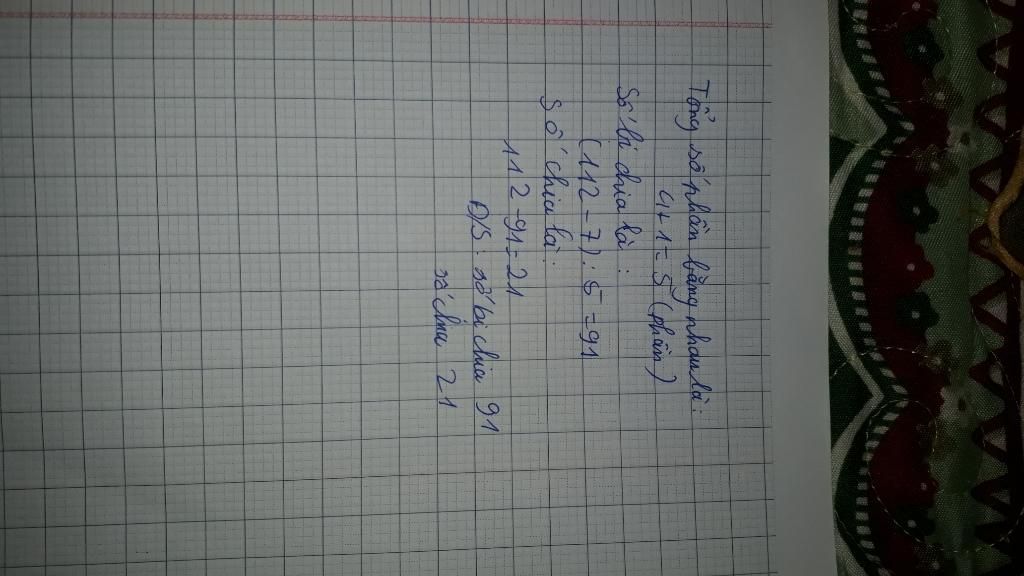 Tổng số phần bằng nhau là:
4+1=5 (phần)
Số bị chia là:
(112-7):5=91
Số chia là:
112-91=21
Đ/S: số bị chia 91
số chia 21